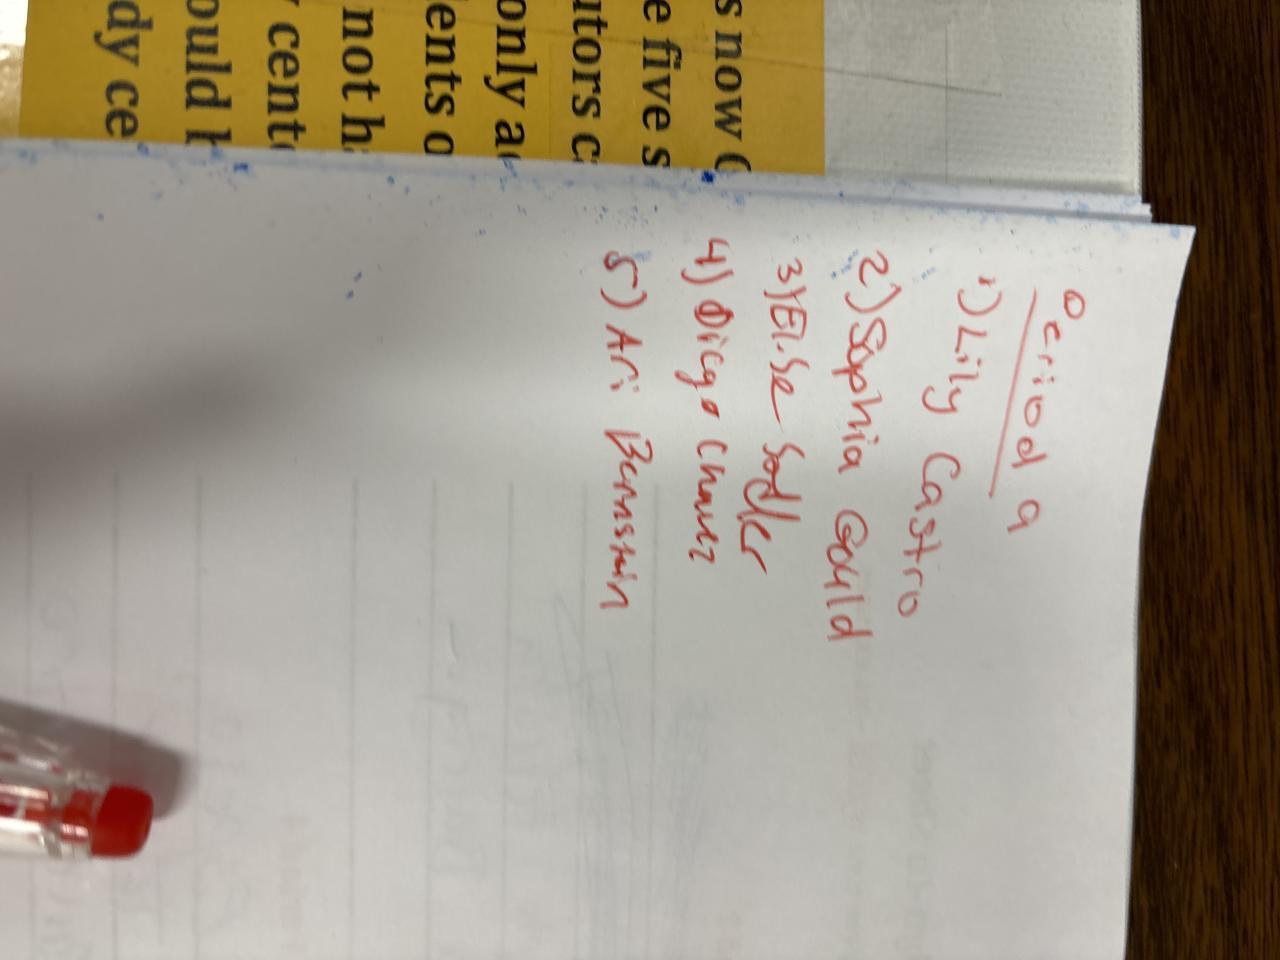 s now
e five s
utors c
only a
ents o
not h
cent
ould
dy ce
Period 9
1) Lily Castro
2) Sophia Gould
3) Elise Sadler
4) Diego Chavez
5) Ari Bernstein